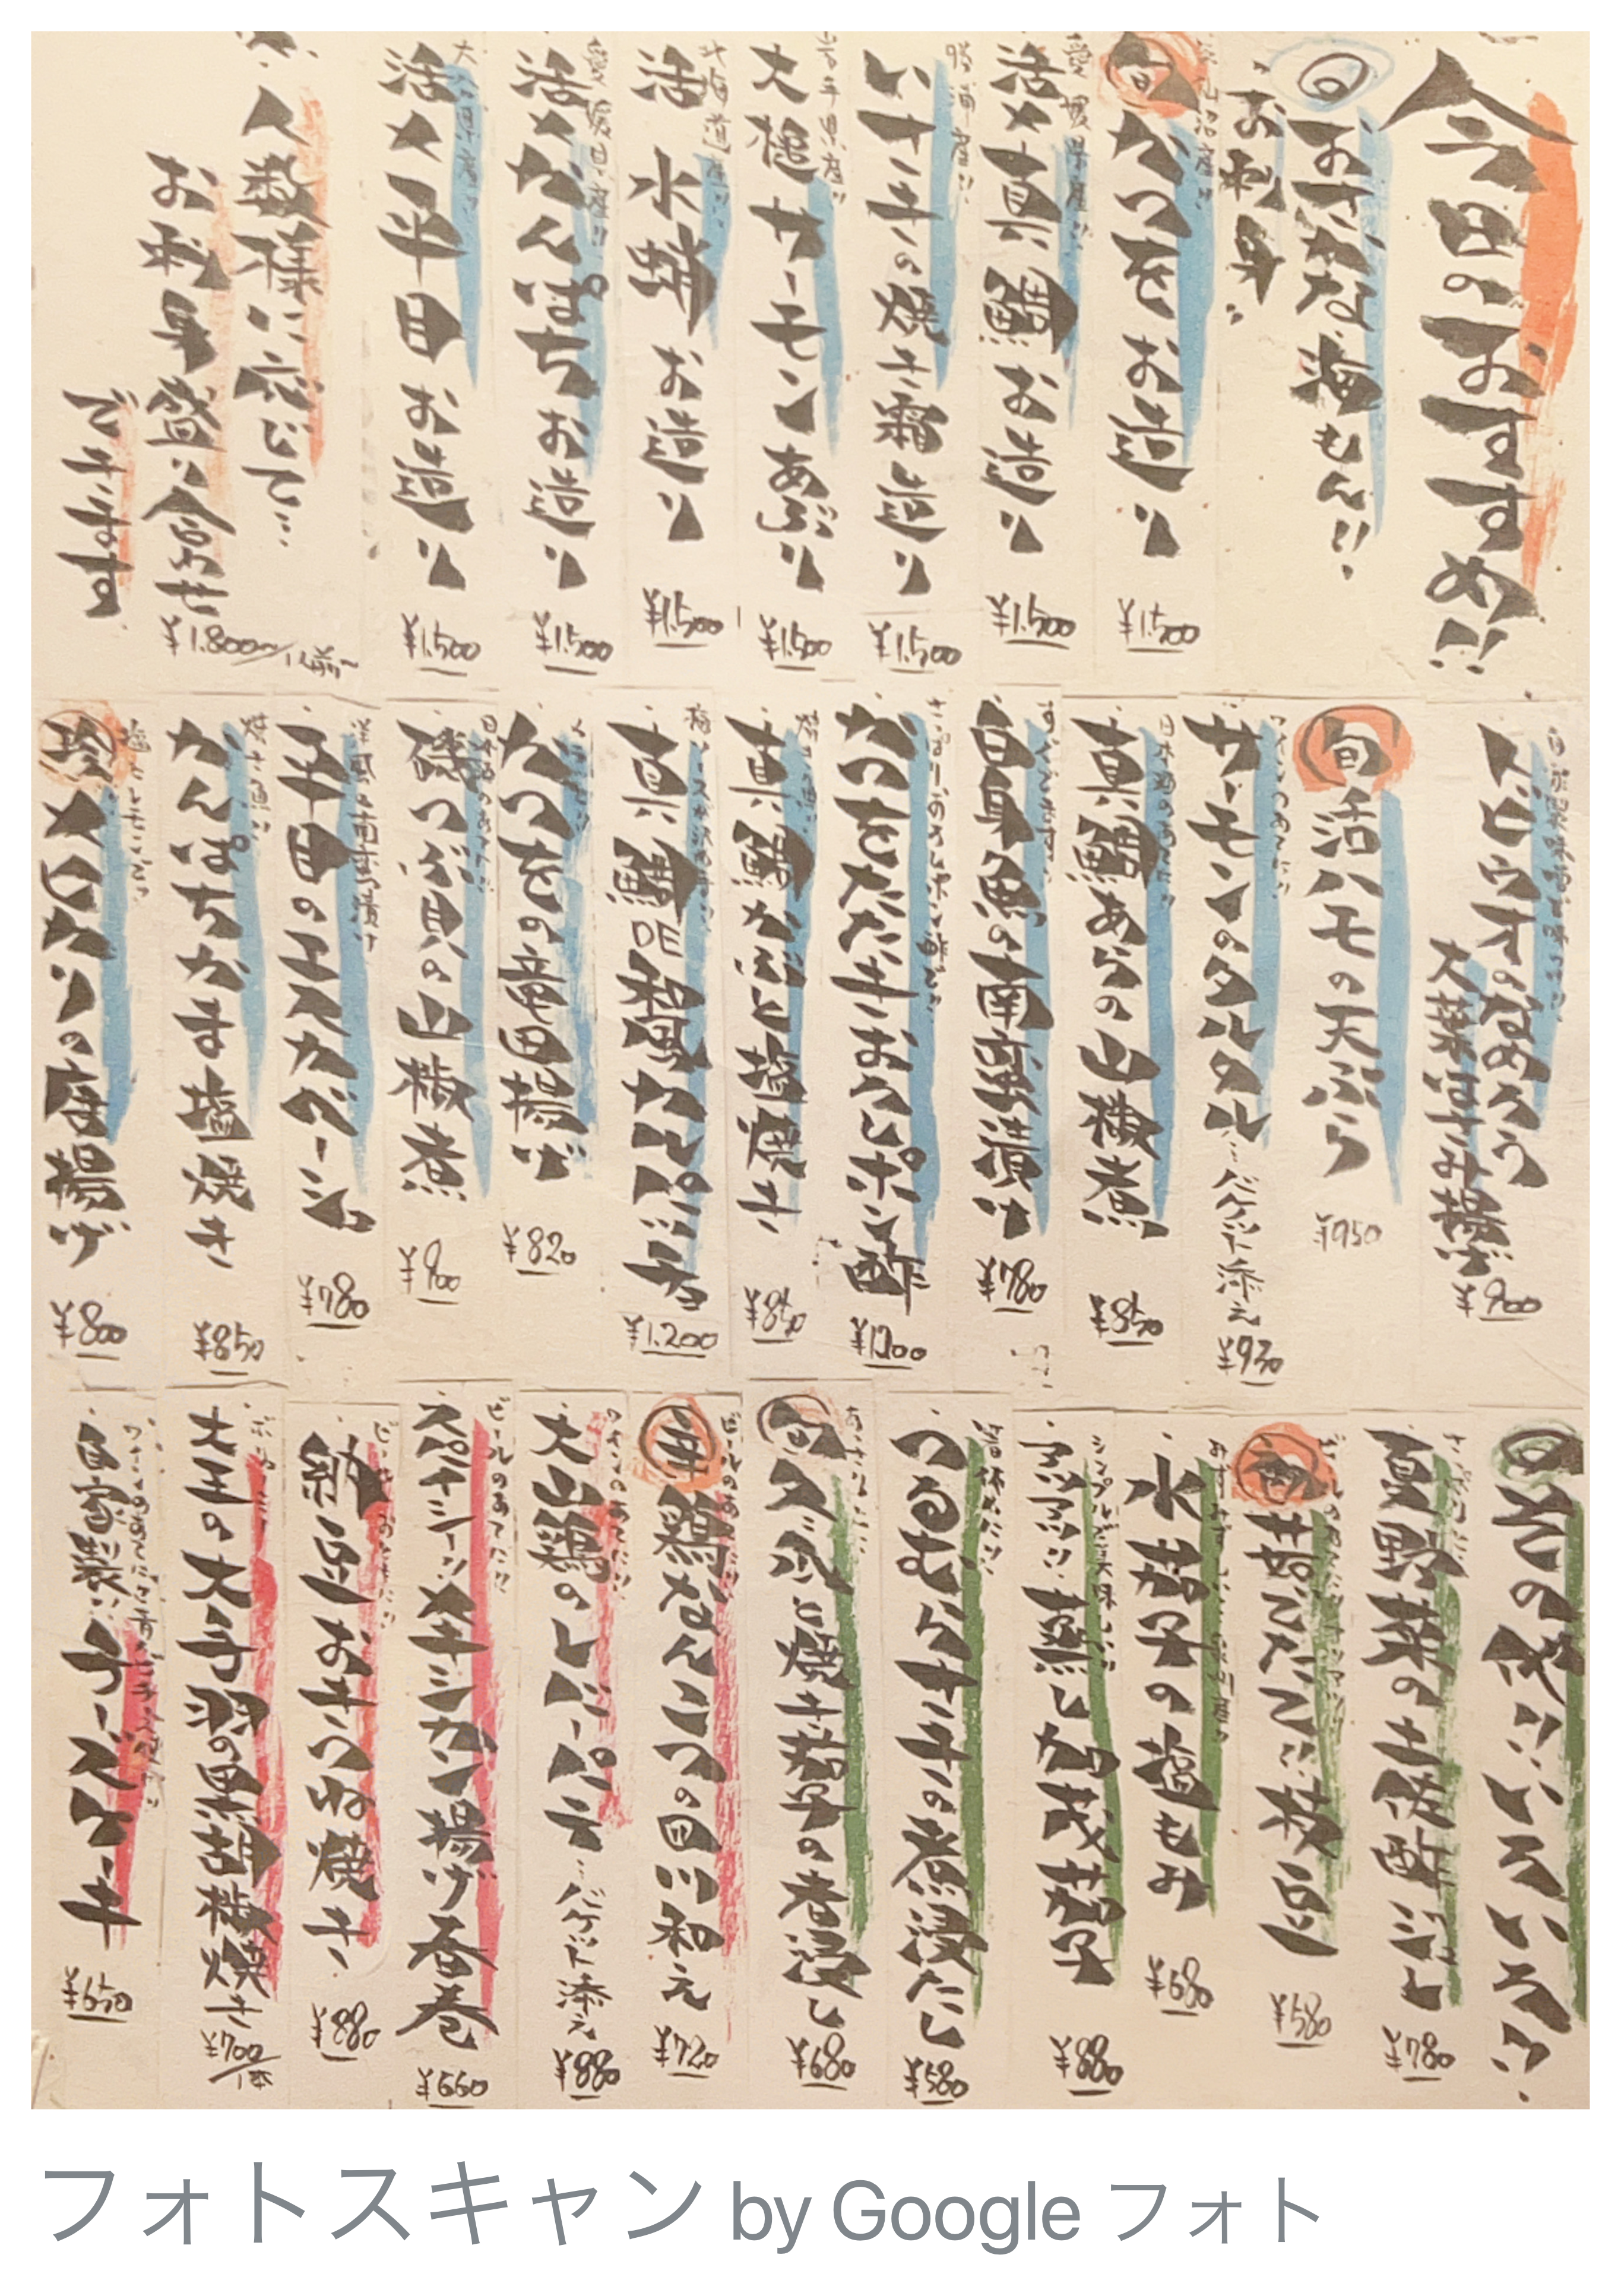 今日のおすすめ!!
旬 おさかな海もん!!
お刺身
旬 かつをお造り ¥1.500
愛媛県産!!
活〆真鯛お造り ¥1.500
勝浦産!!
いサキの焼き霜造り ¥1.500
岩手県産!!
大槌サーモンあぶり ¥1.500
北海道産!!
活 水蛸お造り ¥1.500
愛媛県産!!
活〆かんぱちお造り ¥1.500
活〆平目お造り ¥1.500
人数様に応じて…
お刺身盛り合わせ ¥1.800〜/1人前〜
できます
トビウオのなめろう
大葉はさみ揚げ ¥900
旬 活ハモの天ぷら ¥950
サーモンのタルタル…バケット添え ¥930
真鯛あらの山椒煮 ¥850
白身魚の南蛮漬け ¥780
かつをたたきおろしポン酢 ¥1200
真鯛かぶと塩焼き ¥850
真鯛DE和風カルパッチョ ¥1.200
かつをの竜田揚げ ¥820
磯つぶ貝の山椒煮 ¥900
洋風の南蛮漬け
平目のエスカベーシュ ¥780
かんぱちかま塩焼き ¥850
珍 メヒカリの唐揚げ ¥800
旬 その他!!いろいろ!!
夏野菜の土佐酢ジュレ ¥780
茹でたて!!枝豆 ¥580
水茄子の塩もみ ¥680
シンプルで美味っ!!
アツアツ!!蒸し加茂茄子 ¥880
つるむらサキの煮浸たし ¥580
旬 冷し焼き茄子の煮浸し ¥680
鶏なんこつの四川和え ¥720
ワインのあてに!!
大山鶏のレバーパテ…バケット添え ¥880
ビールのあてに!!
スパイシー!!メキシカン揚げ春巻 ¥660
納豆おきつね焼き ¥880
大王の大手羽の黒胡椒焼き ¥700/1本
自家製チーズケーキ ¥650
フォトスキャン by Google フォト